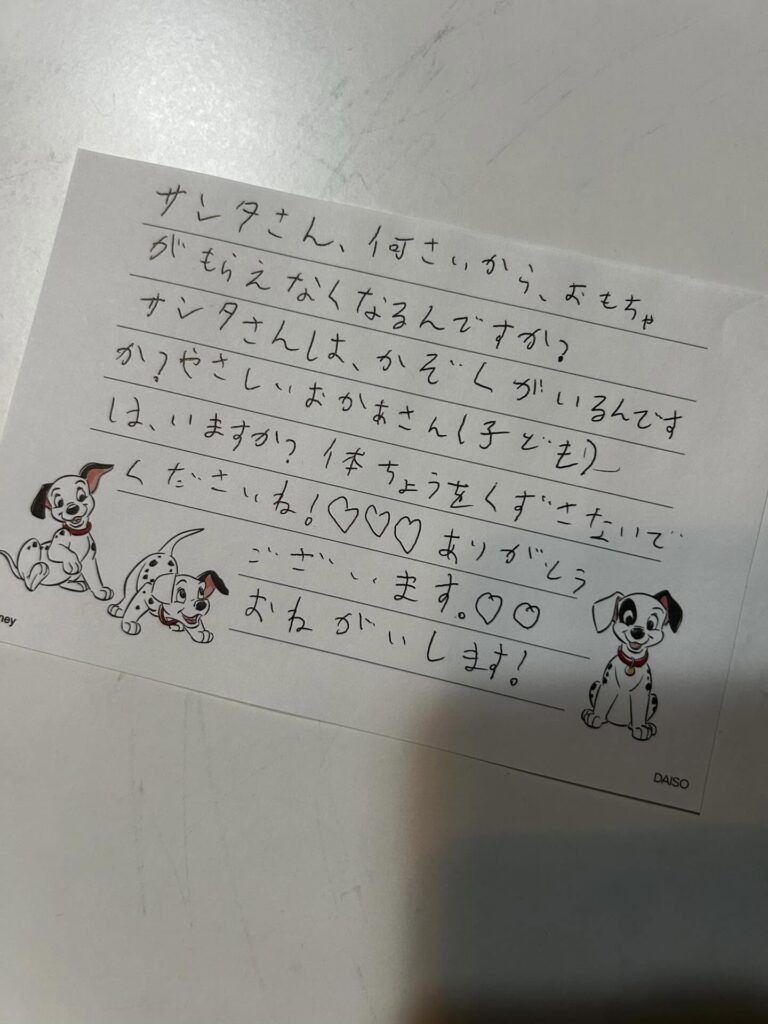 サンタさん、何さいから、おもちゃ
がもらえなくなるんですか?
サンタさんは、かぞくがいるんです
か?やさしいおかあさん(子ども)
は、いますか?体ちょうをくずさないで
くださいね!♡♡♡ありがとう
ございます。♡♡
おねがいします!
ney
DAISO